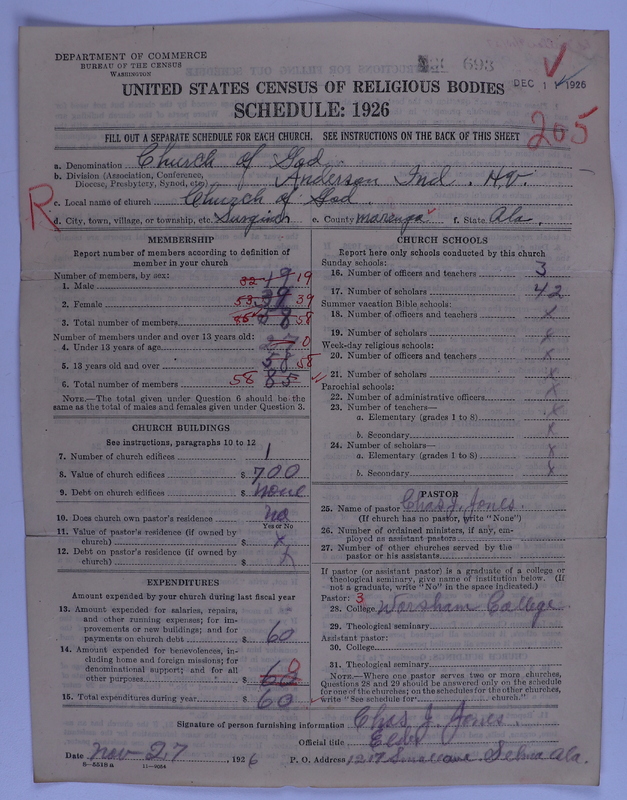 DEPARTMENT OF COMMERCE
BUREAU OF THE CENSUS
WASHINGTON
693
DEC 1 1926
UNITED STATES CENSUS OF RELIGIOUS BODIES
SCHEDULE: 1926
FILL OUT A SEPARATE SCHEDULE FOR EACH CHURCH. SEE INSTRUCTIONS ON THE BACK OF THIS SHEET
205
a. Denomination Church of God
b. Division (Association, Conference, Diocese, Presbytery, Synod, etc.) Anderson Ind.
c. Local name of church Church of God.
R
d. City, town, village, or township, etc. e. County Marengo f. State Ala.
MEMBERSHIP
Report number of members according to definition of member in your church
Number of members, by sex:
1. Male 32 19 19
2. Female 53 39 39
3. Total number of members 85 58 58
Number of members under and over 13 years old:
4. Under 13 years of age 0
5. 13 years old and over 58 58
6. Total number of members 58 85
NOTE.—The total given under Question 6 should be the same as the total of males and females given under Question 3.
CHURCH BUILDINGS
See instructions, paragraphs 10 to 12
7. Number of church edifices 1
8. Value of church edifices $ 700
9. Debt on church edifices $ none
10. Does church own pastor's residence no
Yes or No
11. Value of pastor's residence (if owned by church) $ x
12. Debt on pastor's residence (if owned by church) $ x
EXPENDITURES
Amount expended by your church during last fiscal year
13. Amount expended for salaries, repairs, and other running expenses; for improvements or new buildings; and for payments on church debt $ 60
14. Amount expended for benevolences, including home and foreign missions; for denominational support; and for all other purposes $ 60 0
15. Total expenditures during year $ 60
CHURCH SCHOOLS
Report here only schools conducted by this church
Sunday schools:
16. Number of officers and teachers 3
17. Number of scholars 42
Summer vacation Bible schools:
18. Number of officers and teachers x
19. Number of scholars x
Week-day religious schools:
20. Number of officers and teachers x
21. Number of scholars x
Parochial schools:
22. Number of administrative officers x
23. Number of teachers—
a. Elementary (grades 1 to 8) x
b. Secondary x
24. Number of scholars—
a. Elementary (grades 1 to 8) x
b. Secondary x
PASTOR
25. Name of pastor Chas. J. Jones.
(If church has no pastor, write "None")
26. Number of ordained ministers, if any, employed as assistant pastors
27. Number of other churches served by the pastor or his assistants
If pastor (or assistant pastor) is a graduate of a college or theological seminary, give name of institution below. (If not a graduate, write "No" in the space indicated.)
Pastor: 3
28. College Worsham College
29. Theological seminary
Assistant pastor:
30. College
31. Theological seminary
NOTE.—Where one pastor serves two or more churches, Questions 28 and 29 should be answered only on the schedule for one of the churches; on the schedules for the other churches, write "See schedule for church."
Signature of person furnishing information Chas. J. Jones.
Official title Elder
Date Nov 27, 1926 P. O. Address 1217 Selma Ala.
8—5518a